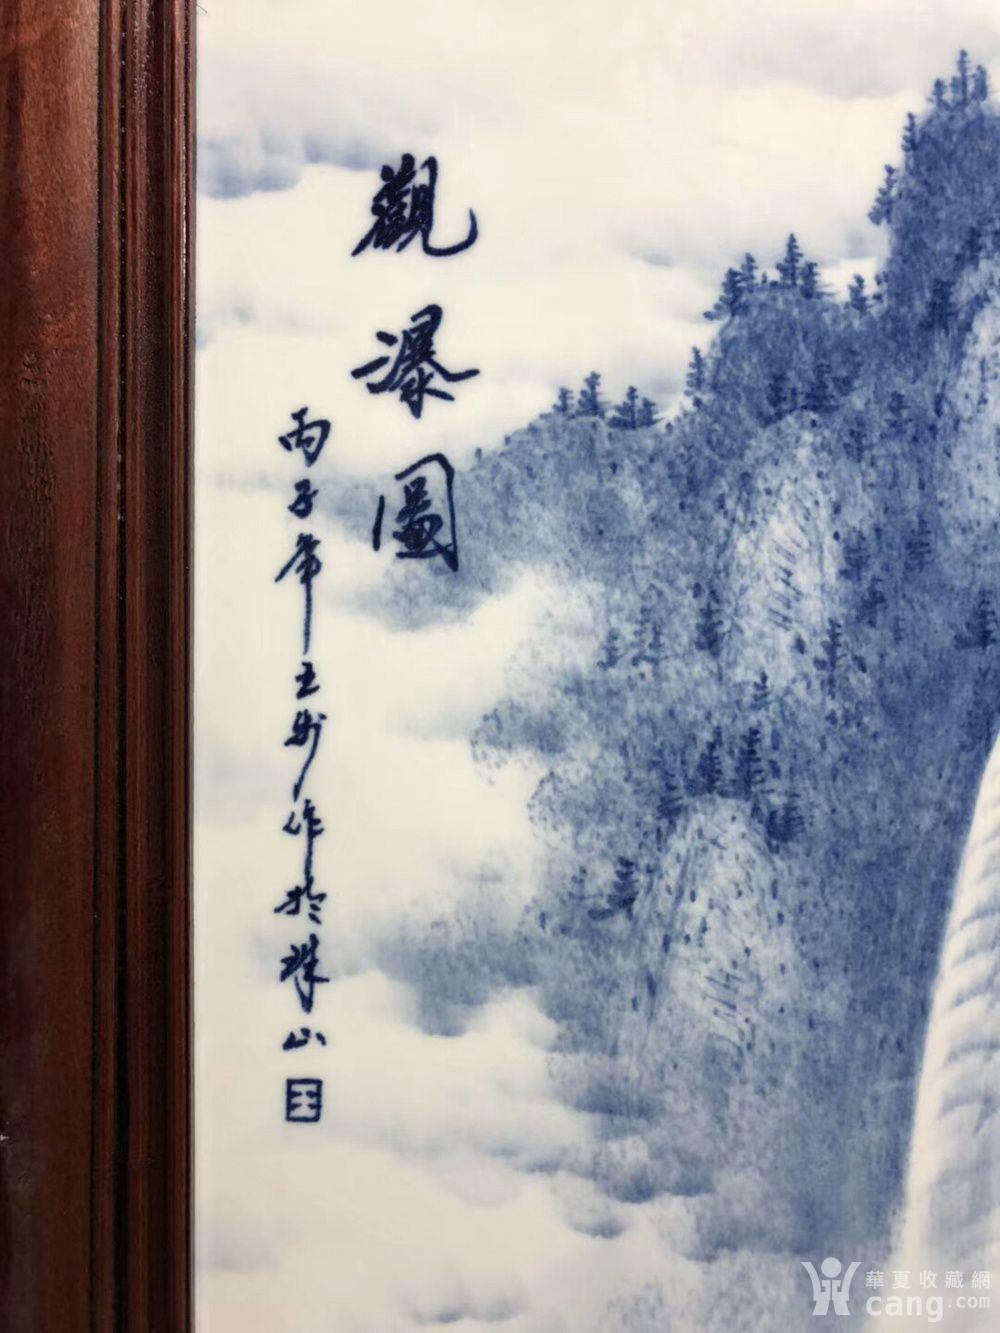 觀瀑圖
丙子年王步作於珠山
王
華夏收藏網
cang.com